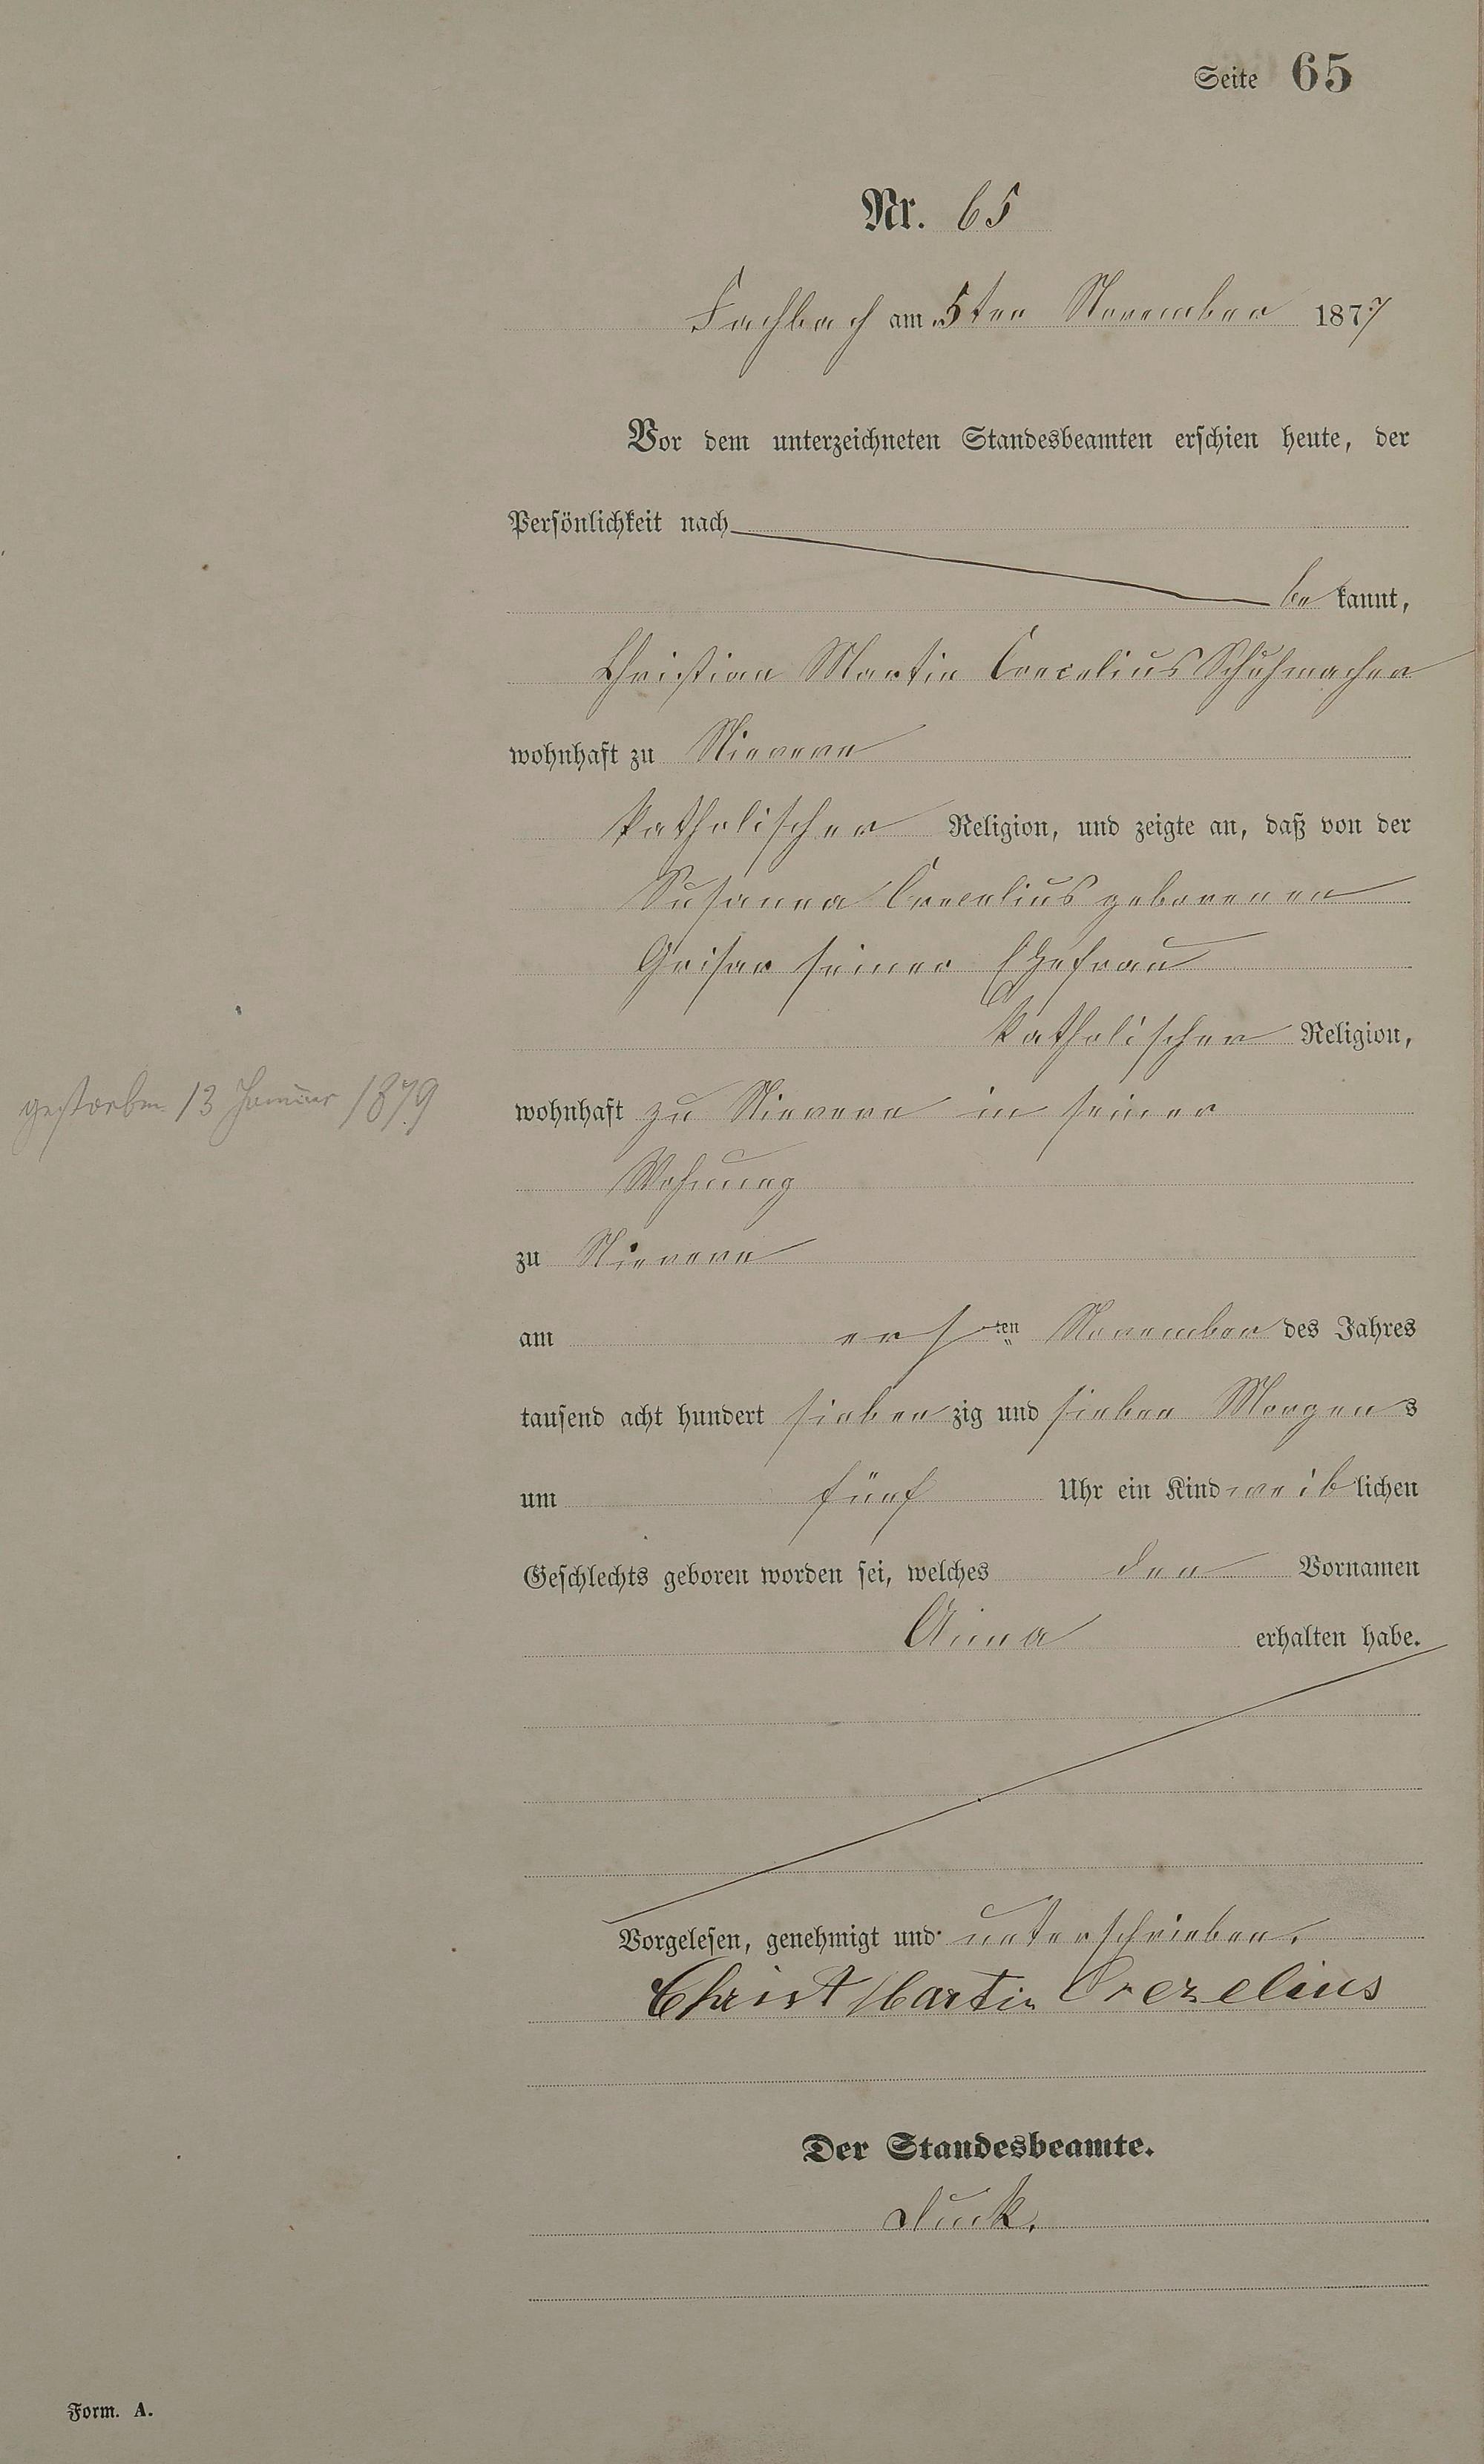 Seite 65
Nr. 65
Fachbach am 5ten November 1877
Vor dem unterzeichneten Standesbeamten erschien heute, der
Persönlichkeit nach
be kannt,
Christian Martin Crecelius Schuhmacher
wohnhaft zu Nievern
katholischer Religion, und zeigte an, daß von der
Susanna Crecelius geborenen
Griser seiner Ehefrau
katholischer Religion,
gestorben 13 Januar 1879
wohnhaft zu Nievern in seiner
Wohnung
zu Nievern
am ersten November des Jahres
tausend acht hundert sieben zig und sieben Morgens
um fünf Uhr ein Kind weiblichen
Geschlechts geboren worden sei, welches den Vornamen
Anna erhalten habe.
Vorgelesen, genehmigt und unterschrieben.
Christ Martin Crezelius
Der Standesbeamte.
Form. A.